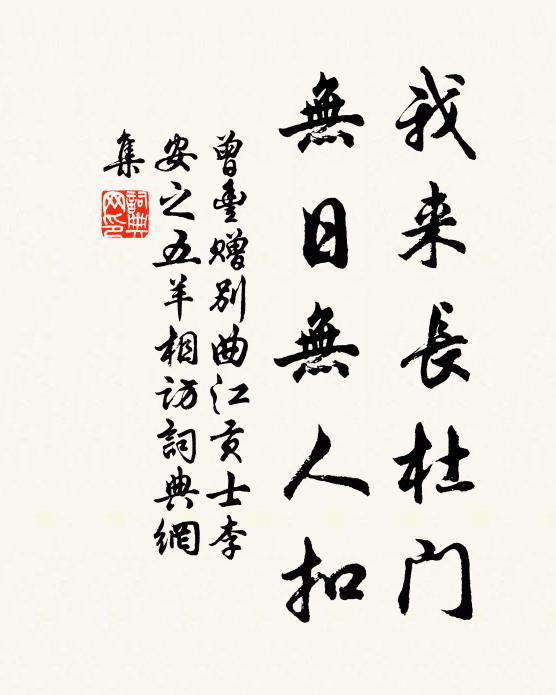 我来長杜门
無日無人扣
曾豊赠别曲江贡士李
安之五羊相访詞典網
集
詞典网印